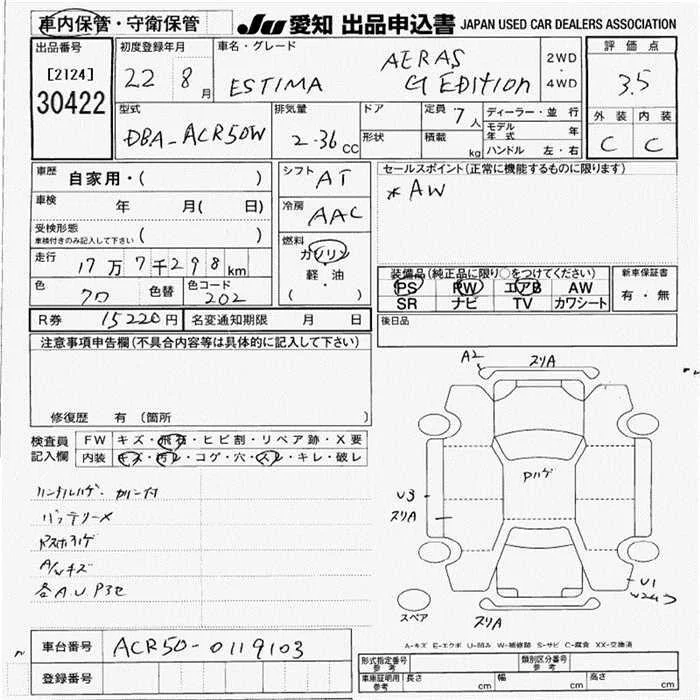 車内保管・守衛保管
JU 愛知 出品申込書 JAPAN USED CAR DEALERS ASSOCIATION
出品番号
[2124]
30422
初度登録年月
22 8月
車名・グレード
ESTIMA AERAS G EDITION
2WD
・
4WD
評価点
3.5
外装 内装
C C
型式
DBA-ACR50W
排気量
2.36cc
ドア
形状
定員 7人
積載 kg
ディーラー・並行
モデル年式 年
ハンドル 左・右
車歴 自家用・( )
車検 年 月( 日)
受検形態
車検付きのみ記入して下さい ( )
走行 17万7千298km
色 クロ 色替 色コード 202
シフト AT
冷房 AAC
燃料
ガソリン
・
軽・油
( ・ )
セールスポイント(正常に機能するものに限ります)
*AW
装備品(純正品に限り○をつけてください)
PS PW エアB AW
SR ナビ TV カワシート
新車保証書
有・無
後日品
R券 15220円 名変通知期限 月 日
注意事項申告欄(不具合内容等は具体的に記入して下さい)
修復歴 有(箇所 )
検査員記入欄
FW キズ・飛石・ヒビ割・リペア跡・X要
内装 キズ・汚レ・コゲ・穴・スレ・キレ・破レ
ハンドルハゲ・カバー付
バッテリーメ
A/Wキズ
各AU P3セ
A2 スリA
Pハゲ
U3
スリA
U1
スリA
スペア
A-キズ E-エクボ U-凹み W-補修跡 S-サビ C-腐食 XX-交換済
車台番号 ACR50-0119103
登録番号
形式指定番号参考
類別区分番号参考
車庫証明用参考 長さ cm 幅 cm 高さ cm